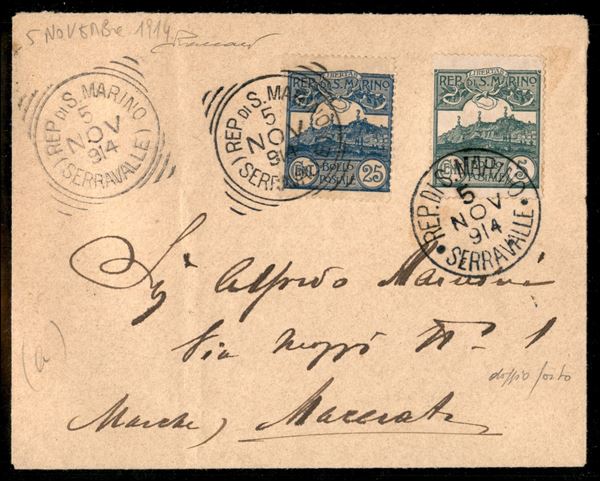 5 NOVEMBRE 1914
REP. DI S. MARINO
5
NOV
914
(SERRAVALLE)
REP. DI S. MARINO
5
NOV
914
(SERRAVALLE)
LIBERTAS
REP. DI S. MARINO
BOLLO
POSTALE
CMI 25
LIBERTAS
REP. DI S. MARINO
5
REP. DI S. MARINO
5
NOV
914
SERRAVALLE
Sig Alfredo
Via N° 1
doppio porto
Marche) Macerata
(a)